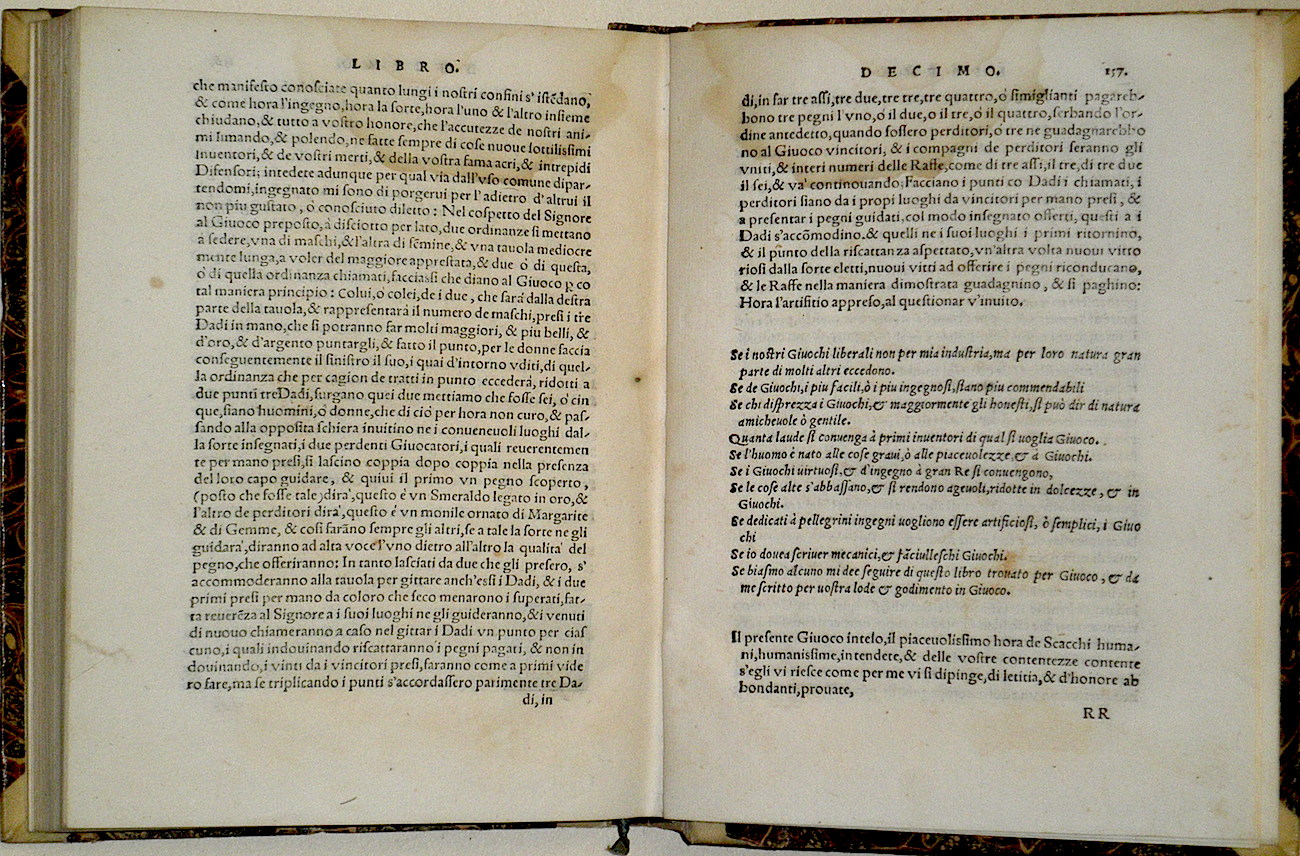 LIBRO.
che manifesto conosciate quanto lungi i nostri confini s'istēdano,
& come hora l'ingegno, hora la sorte, hora l'uno & l'altro insieme
chiudano, & tutto a vostro honore, che l'accutezze de nostri ani-
mi limando, & polendo, ne fatte sempre di cose nuoue sottilissimi
inuentori, & de vostri merti, & della vostra fama acri, & intrepidi
Difensori; intedete adunque per qual via dall'vso comune dipar-
tendomi, ingegnato mi sono di porgerui per l'adietro d'altrui il
non piu gustato, ò conosciuto diletto: Nel cospetto del Signore
al Giuoco preposto, à disciotto per lato, due ordinanze si mettano
a sedere, vna di maschi, & l'altra di femine, & vna tauola mediocre
mente lunga, a voler del maggiore apprestata, & due ò di questa,
ò di quella ordinanza chiamati, facciasi che diano al Giuoco p co
tal maniera principio: Colui, ò colei, de i due, che sarà dalla destra
parte della tauola, & rappresentarà il numero de maschi, presi i tre
Dadi in mano, che si potranno far molti maggiori, & piu belli, &
d'oro, & d'argento puntargli, & fatto il punto, per le donne faccia
conseguentemente il sinistro il suo, i quai d'intorno vditi, di quel-
la ordinanza che per cagion de tratti in punto eccederà, ridotti a
due punti tre Dadi, surgano quei due mettiamo che fosse sei, ò cin
que, siano huomini, ò donne, che di ciò per hora non curo, & pas-
sando alla opposita schiera inuitino ne i conueneuoli luoghi dal-
la sorte insegnati, i due perdenti Giuocatori, i quali reuerentemen
te per mano presi, si lascino coppia dopo coppia nella presenza
del loro capo guidare, & quiui il primo vn pegno scoperto,
(posto che fosse tale) dirà, questo è vn Smeraldo legato in oro, &
l'altro de perditori dirà, questo è vn monile ornato di Margarite
& di Gemme, & così farāno sempre gli altri, se a tale la sorte ne gli
guidarà, diranno ad alta voce l'vno dietro all'altro la qualità del
pegno, che offeriranno: In tanto lasciati da due che gli presero, s'
accommoderanno alla tauola per gittare anch'essi i Dadi, & i due
primi presi per mano da coloro che seco menarono i superati, fat-
ta reuerēza al Signore a i suoi luoghi ne gli guideranno, & i venuti
di nuouo chiameranno a caso nel gittar i Dadi vn punto per cias
cuno, i quali indouinando riscattaranno i pegni pagati, & non in
douinando, i vinti da i vincitori presi, faranno come a primi vide
ro fare, ma se triplicando i punti s'accordassero parimente tre Da-
di, in
DECIMO. 157.
di, in far tre assi, tre due, tre tre, tre quattro, ò simiglianti pagareb-
bono tre pegni l'vno, ò il due, o il tre, ò il quattro, serbando l'or-
dine antedetto, quando fossero perditori, ò tre ne guadagnarebbo
no al Giuoco vincitori, & i compagni de perditori seranno gli
vniti, & interi numeri delle Raffe, come di tre assi, il tre, di tre due
il sei, & và continouando: Facciano i punti co Dadi i chiamati, i
perditori siano da i propi luoghi da vincitori per mano presi, &
a presentar i pegni guidati, col modo insegnato offerti, questi a i
Dadi s'accōmodino. & quelli ne i suoi luoghi i primi ritornino,
& il punto della riscattanza aspettato, vn'altra volta nuoui vitto
riosi dalla sorte eletti, nuoui vitti ad offerire i pegni riconducano,
& le Raffe nella maniera dimostrata guadagnino, & si paghino:
Hora l'artifitio appreso, al questionar v'inuito.
Se i nostri Giuochi liberali non per mia industria, ma per loro natura gran
parte di molti altri eccedono.
Se de Giuochi, i piu facili, ò i piu ingegnosi, siano piu commendabili
Se chi disprezza i Giuochi, & maggiormente gli honesti, si può dir di natura
amicheuole ò gentile.
Quanta laude si conuenga à primi inuentori di qual si uoglia Giuoco.
Se l'huomo è nato alle cose graui, ò alle piaceuolezze, & à Giuochi.
Se i Giuochi uirtuosi, & d'ingegno à gran Re si conuengono,
Se le cose alte s'abbassano, & si rendono ageuoli, ridotte in dolcezze, & in
Giuochi.
Se dedicati à pellegrini ingegni uogliono essere artificiosi, ò semplici, i Giuo
chi
Se io douea scriuer mecanici, & fāciulleschi Giuochi.
Se biasmo alcuno mi dee seguire di questo libro trouato per Giuoco, & da
me scritto per uostra lode & godimento in Giuoco.
Il presente Giuoco inteso, il piaceuolissimo hora de Scacchi huma-
ni, humanissime, intendete, & delle vostre contentezze contente
s'egli vi riesce come per me vi si dipinge, di letitia, & d'honore ab
bondanti, prouate,
RR